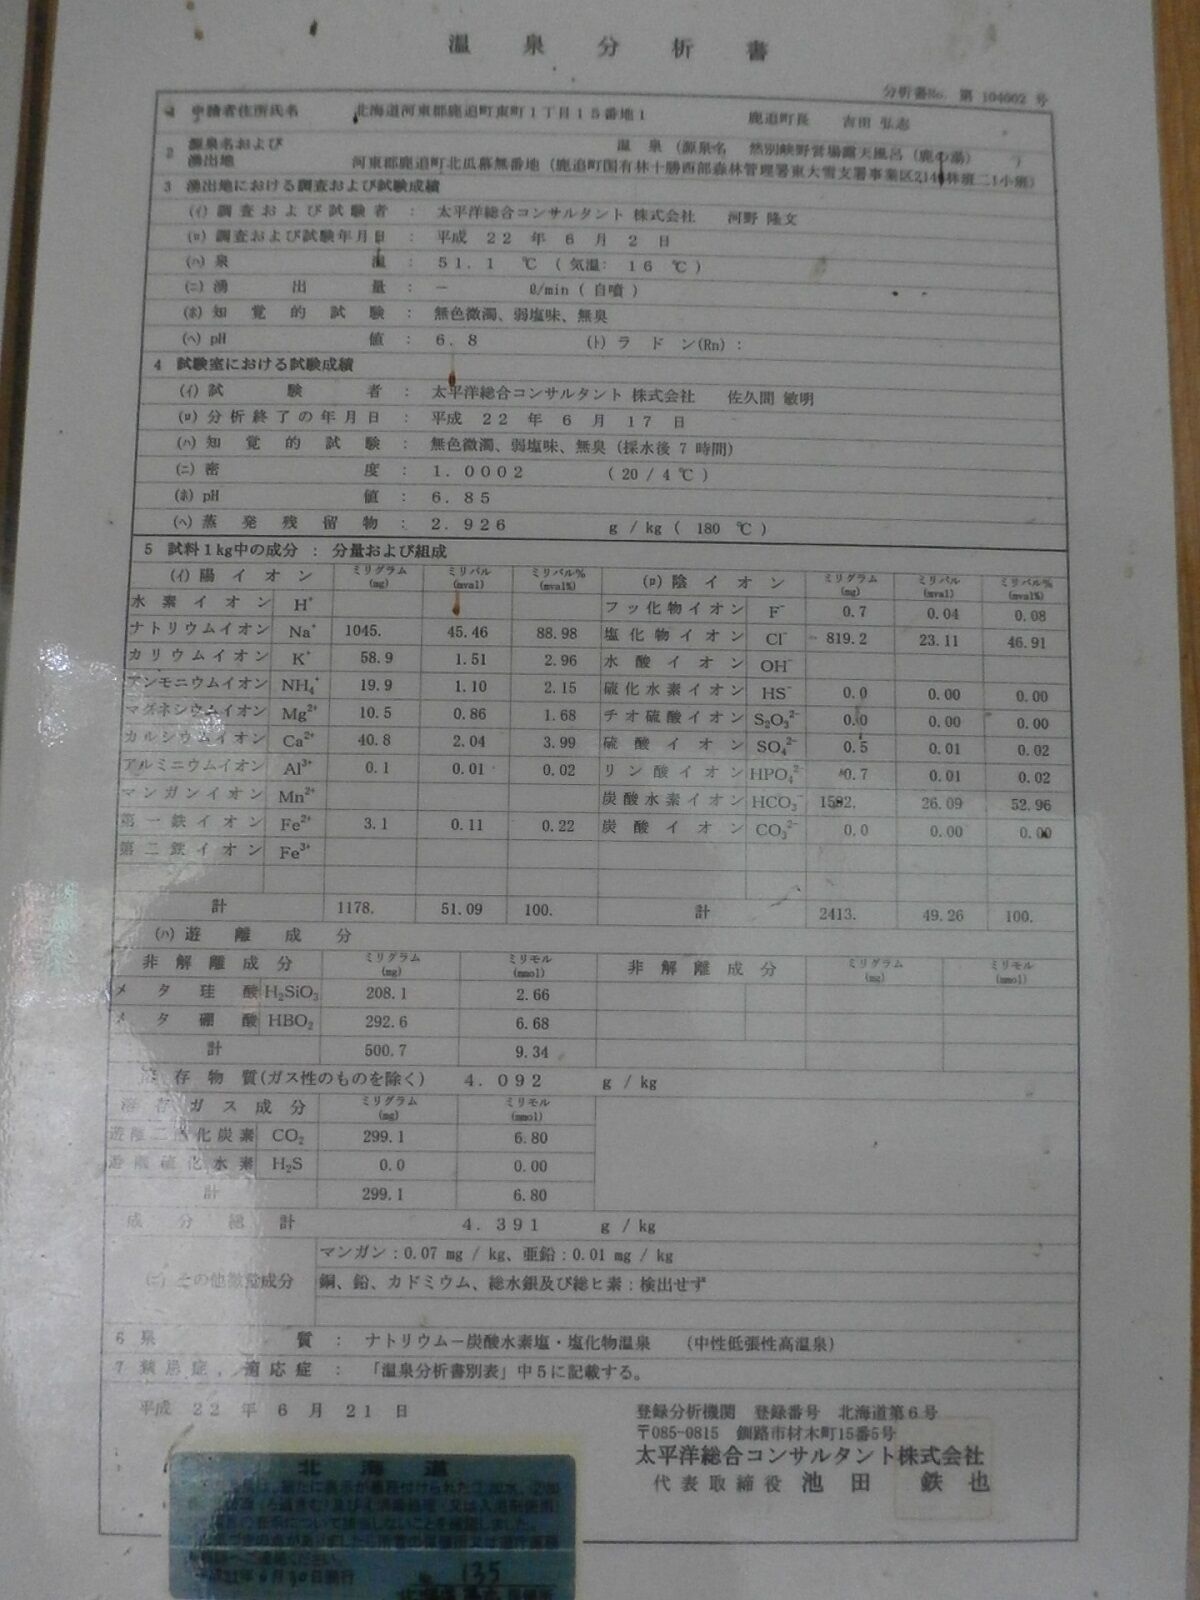 温泉分析書
分析書No. 第 104002 号
1 申請者住所氏名 北海道河東郡鹿追町東町1丁目15番地1 鹿追町長 吉田 弘志
2 源泉名および湧出地 温泉(源泉名 然別峡野営場露天風呂(鹿の湯) )
河東郡鹿追町北瓜幕無番地(鹿追町国有林十勝西部森林管理署東大雪支署事業区214林班ニ1小班)
3 湧出地における調査および試験成績
(イ)調査および試験者 : 太平洋総合コンサルタント 株式会社 河野 隆文
(ロ)調査および試験年月日 : 平成 22 年 6 月 2 日
(ハ)泉温 : 51.1 ℃ (気温: 16 ℃)
(ニ)湧出量 : − ℓ/min (自噴)
(ホ)知覚的試験 : 無色微濁、弱塩味、無臭
(ヘ)pH値 : 6.8 (ト)ラドン(Rn) :
4 試験室における試験成績
(イ)試験者 : 太平洋総合コンサルタント 株式会社 佐久間 敏明
(ロ)分析終了の年月日 : 平成 22 年 6 月 17 日
(ハ)知覚的試験 : 無色微濁、弱塩味、無臭(採水後 7 時間)
(ニ)密度 : 1.0002 (20/4℃)
(ホ)pH値 : 6.85
(ヘ)蒸発残留物 : 2.926 g/kg(180 ℃)
5 試料1kg中の成分 : 分量および組成
(イ)陽イオン ミリグラム(mg) ミリバル(mval) ミリバル%(mval%) (ロ)陰イオン ミリグラム(mg) ミリバル(mval) ミリバル%(mval%)
水素イオン H⁺ フッ化物イオン F⁻ 0.7 0.04 0.08
ナトリウムイオン Na⁺ 1045. 45.46 88.98 塩化物イオン Cl⁻ 819.2 23.11 46.91
カリウムイオン K⁺ 58.9 1.51 2.96 水酸イオン OH⁻
アンモニウムイオン NH₄⁺ 19.9 1.10 2.15 硫化水素イオン HS⁻ 0.0 0.00 0.00
マグネシウムイオン Mg²⁺ 10.5 0.86 1.68 チオ硫酸イオン S₂O₃²⁻ 0.0 0.00 0.00
カルシウムイオン Ca²⁺ 40.8 2.04 3.99 硫酸イオン SO₄²⁻ 0.5 0.01 0.02
アルミニウムイオン Al³⁺ 0.1 0.01 0.02 リン酸イオン HPO₄²⁻ 0.7 0.01 0.02
マンガンイオン Mn²⁺ 炭酸水素イオン HCO₃⁻ 1592. 26.09 52.96
第一鉄イオン Fe²⁺ 3.1 0.11 0.22 炭酸イオン CO₃²⁻ 0.0 0.00 0.00
第二鉄イオン Fe³⁺
計 1178. 51.09 100. 計 2413. 49.26 100.
(ハ)遊離成分
非解離成分 ミリグラム(mg) ミリモル(mmol) 非解離成分 ミリグラム(mg) ミリモル(mmol)
メタ珪酸 H₂SiO₃ 208.1 2.66
メタ硼酸 HBO₂ 292.6 6.68
計 500.7 9.34
溶存物質(ガス性のものを除く) 4.092 g/kg
溶存ガス成分 ミリグラム(mg) ミリモル(mmol)
遊離二酸化炭素 CO₂ 299.1 6.80
遊離硫化水素 H₂S 0.0 0.00
計 299.1 6.80
成分総計 4.391 g/kg
(ニ)その他微量成分 マンガン:0.07 mg/kg、亜鉛:0.01 mg/kg
銅、鉛、カドミウム、総水銀及び総ヒ素:検出せず
6 泉質 : ナトリウム−炭酸水素塩・塩化物温泉 (中性低張性高温泉)
7 禁忌症,適応症 : 「温泉分析書別表」中5に記載する。
平成 22 年 6 月 21 日
登録分析機関 登録番号 北海道第6号
〒085-0815 釧路市材木町15番5号
太平洋総合コンサルタント株式会社
代表取締役 池田 鉄也
北海道
135